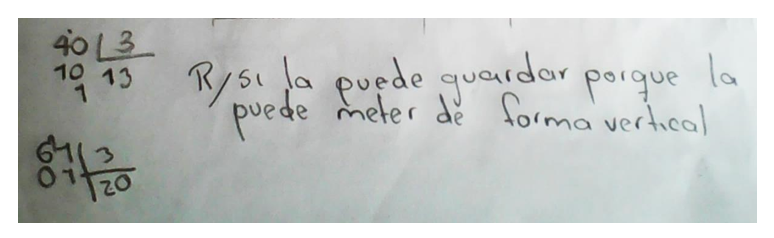 40 | 3
10 13
1
R/ si la puede guardar porque la
puede meter de forma vertical
64 | 3
01 20